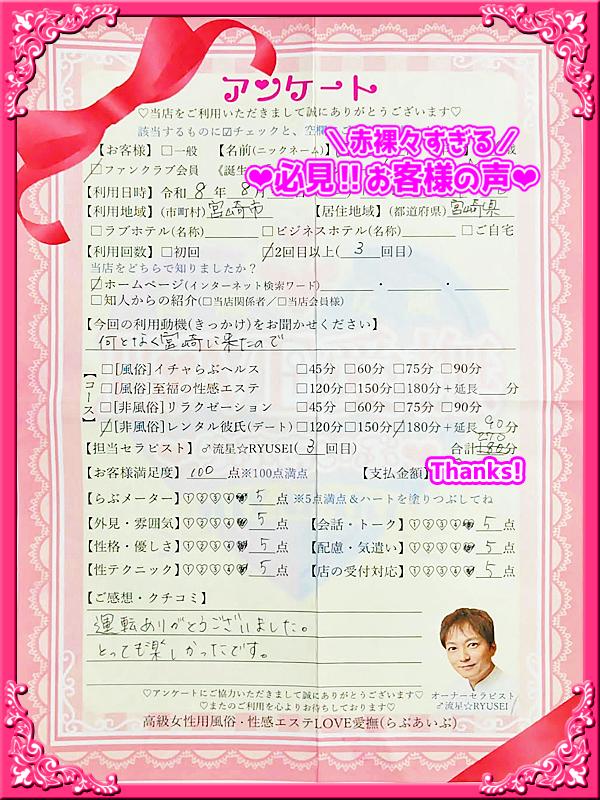 アンケート
♡当店をご利用いただきまして誠にありがとうございます♡
該当するものに☑チェックと、空欄
＼赤裸々すぎる／
❤必見!!お客様の声❤
【お客様】□一般 【名前(ニックネーム)】
☑ファンクラブ会員 《誕生
【利用日時】令和 8 年 8月
【利用地域】(市町村)宮崎市 【居住地域】(都道府県)宮崎県
□ラブホテル(名称) □ビジネスホテル(名称) □ご自宅
【利用回数】□初回 ☑2回目以上( 3 回目)
当店をどちらで知りましたか？
☑ホームページ(インターネット検索ワード) ・ ・
□知人からの紹介(□当店関係者／□当店会員様)
【今回の利用動機(きっかけ)をお聞かせください】
何となく宮崎に来たので
【コース】
□[風俗]イチャらぶヘルス □45分 □60分 □75分 □90分
□[風俗]至福の性感エステ □120分□150分□180分+延長 分
□[非風俗]リラクゼーション □45分 □60分 □75分 □90分
☑[非風俗]レンタル彼氏(デート) □120分□150分☑180分+延長 90分
【担当セラピスト】♂流星☆RYUSEI( 3 回目) 合計 270 180 分
【お客様満足度】 100 点※100点満点 【支払金額】
Thanks!
【らぶメーター】①②③④♥ 5 点 ※5点満点＆ハートを塗りつぶしてね
【外見・雰囲気】①②③④♥ 5 点 【会話・トーク】①②③④♥ 5 点
【性格・優しさ】①②③④♥ 5 点 【配慮・気遣い】①②③④♥ 5 点
【性テクニック】①②③④♥ 5 点 【店の受付対応】①②③④♥ 5 点
【ご感想・クチコミ】
運転ありがとうございました。
とっても楽しかったです。
オーナーセラピスト
♂流星☆RYUSEI
♡アンケートにご協力いただきまして誠にありがとうございます♡
♡またのご利用を心よりお待ちしております♡
高級女性用風俗・性感エステLOVE愛撫(らぶあいぶ)